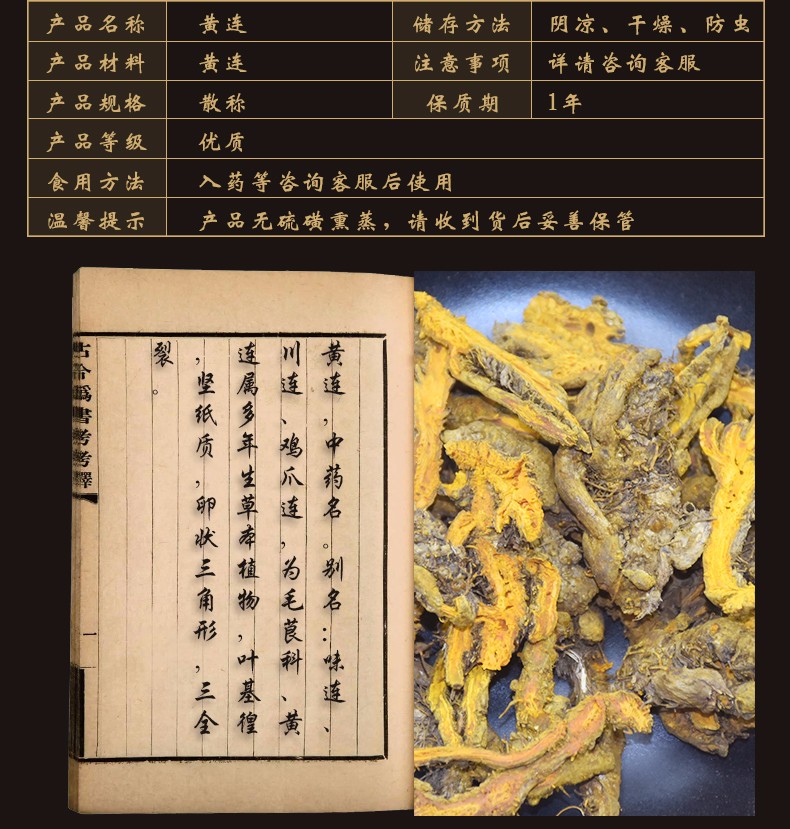 产品名称 黄连 储存方法 阴凉、干燥、防虫
产品材料 黄连 注意事项 详请咨询客服
产品规格 散称 保质期 1年
产品等级 优质
食用方法 入药等咨询客服后使用
温馨提示 产品无硫磺熏蒸，请收到货后妥善保管
黄连，中药名。别名：味连、
川连、鸡爪连，为毛茛科、黄
连属多年生草本植物，叶基徨
，坚纸质，卵状三角形，三全
裂。
書考考釋
一